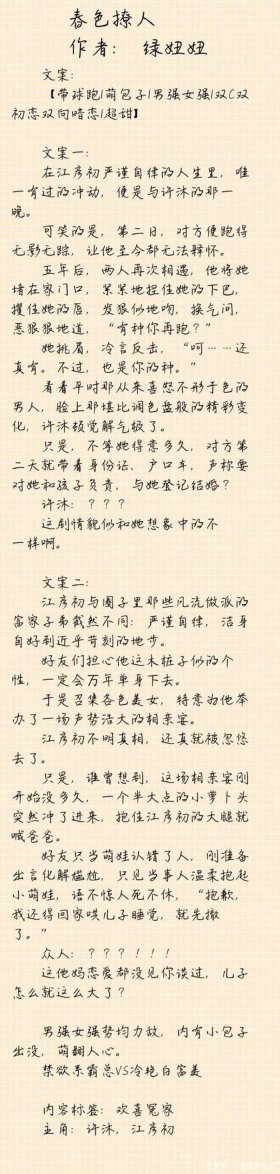 春色撩人
作者: 绿妞妞
文案:
【带球跑|萌包子|男强女强|双C双
初恋双向暗恋|超甜】
文案一:
在江彦初严谨自律的人生里, 唯
一有过的冲动, 便是与许沐的那一
晚。
可笑的是, 第二日, 对方便跑得
无影无踪, 让他至今都无法释怀。
五年后, 两人再次相遇, 他将她
堵在家门口, 狠狠地捏住她的下巴,
攫住她的唇, 发狠似地吻, 换气间,
恶狠狠地道, “有种你再跑?”
她挑眉, 冷言反击, “呵……还
真有。不过, 也是你的种。”
看着平时那从来喜怒不形于色的
男人, 脸上那堪比调色盘般的精彩变
化, 许沐顿觉解气极了。
只是, 不等她得意多久, 对方第
二天就带着身份证、户口本, 声称要
对她和孩子负责, 与她登记结婚?
许沐: ? ? ?
这剧情貌似和她想象中的不
一样啊。
文案二:
江彦初与圈子里那些风流做派的
富家子弟截然不同: 严谨自律, 洁身
自好到近乎苛刻的地步。
好友们担心他这木桩子似的个
性, 一定会万年单身下去。
于是召集各色美女, 特意为他举
办了一场声势浩大的相亲宴。
江彦初不明真相, 还真就被忽悠
去了。
只是, 谁曾想到, 这场相亲宴刚
开始没多久, 一个半大点的小萝卜头
突然冲了进来, 抱住江彦初的大腿就
喊爸爸。
好友只当萌娃认错了人, 刚准备
出言化解尴尬, 只见当事人温柔抱起
小萌娃, 语不惊人死不休, “抱歉,
我还得回家哄儿子睡觉, 就先撤
了。”
众人: ? ? ? ! ! !
这他妈恋爱都没见你谈过, 儿子
怎么就这么大了?
男强女强势均力敌, 内有小包子
出没, 萌翻人心。
禁欲系霸总VS冷艳白富美
内容标签: 欢喜冤家
主角: 许沐, 江彦初